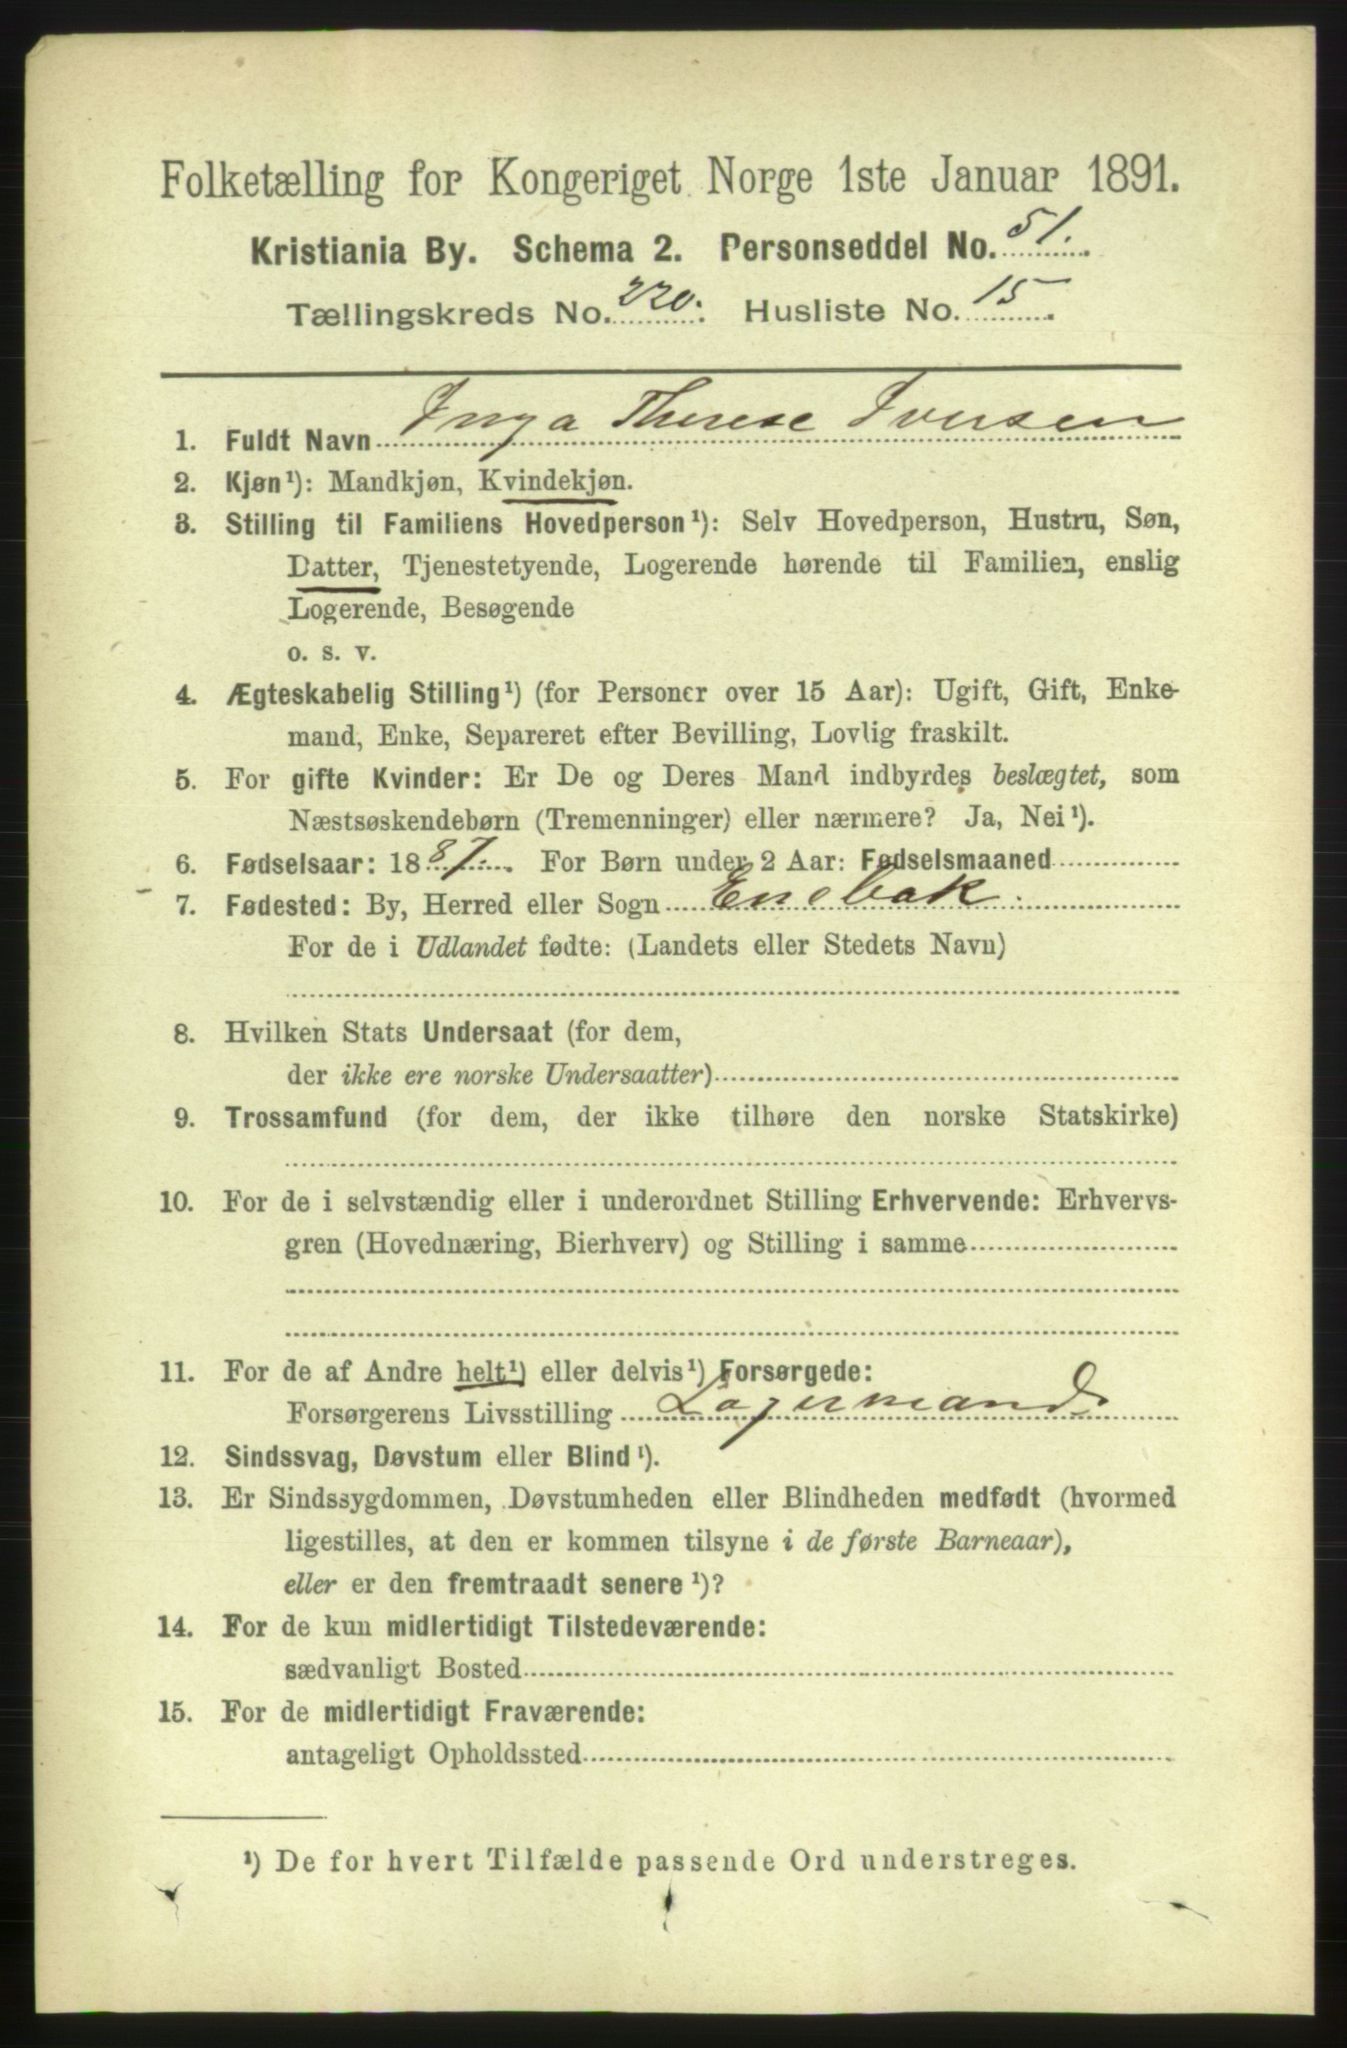 Folketælling for Kongeriget Norge 1ste Januar 1891.
Kristiania By. Schema 2. Personseddel No. 51.
Tællingskreds No. 220. Husliste No. 15.
1. Fuldt Navn Inga Therese Iversen
2. Kjøn¹): Mandkjøn, Kvindekjøn.
3. Stilling til Familiens Hovedperson¹): Selv Hovedperson, Hustru, Søn,
Datter, Tjenestetyende, Logerende hørende til Familien, enslig
Logerende, Besøgende
o. s. v.
4. Ægteskabelig Stilling¹) (for Personer over 15 Aar): Ugift, Gift, Enke-
mand, Enke, Separeret efter Bevilling, Lovlig fraskilt.
5. For gifte Kvinder: Er De og Deres Mand indbyrdes beslægtet, som
Næstsøskendebørn (Tremenninger) eller nærmere? Ja, Nei¹).
6. Fødselsaar: 1887. For Børn under 2 Aar: Fødselsmaaned
7. Fødested: By, Herred eller Sogn Enebak.
For de i Udlandet fødte: (Landets eller Stedets Navn)
8. Hvilken Stats Undersaat (for dem,
der ikke ere norske Undersaatter)
9. Trossamfund (for dem, der ikke tilhøre den norske Statskirke)
10. For de i selvstændig eller i underordnet Stilling Erhvervende: Erhvervs-
gren (Hovednæring, Bierhverv) og Stilling i samme
11. For de af Andre helt¹) eller delvis¹) Forsørgede:
Forsørgerens Livsstilling Lagermand
12. Sindssvag, Døvstum eller Blind¹).
13. Er Sindssygdommen, Døvstumheden eller Blindheden medfødt (hvormed
ligestilles, at den er kommen tilsyne i de første Barneaar),
eller er den fremtraadt senere¹)?
14. For de kun midlertidigt Tilstedeværende:
sædvanligt Bosted
15. For de midlertidigt Fraværende:
antageligt Opholdssted
¹) De for hvert Tilfælde passende Ord understreges.